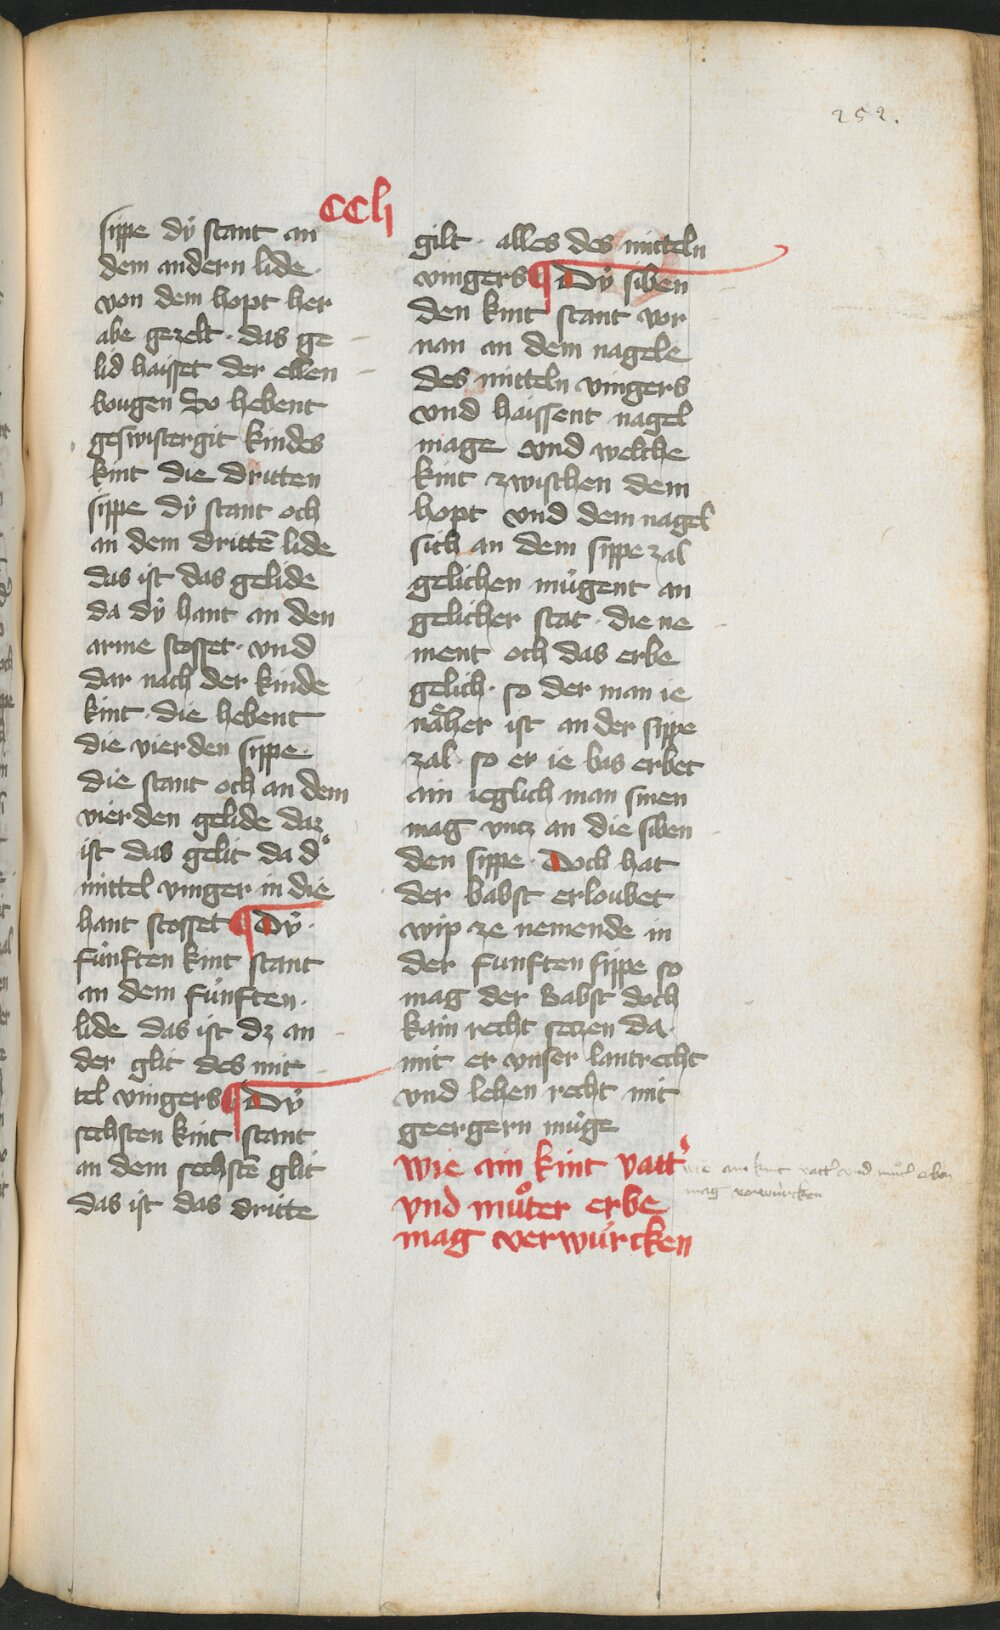 252.
CClj
sippe dÿ stant an
dem andern lide
von dem hopt her
abe gezelt · das ge
lid haisset der ellen
bougen So hebent
geswistergit kindes
kint die dritten
sippe dÿ stant och
an dem drittē lide
das ist das gelide
da dÿ hant an den
arme stosset · vnd
dar nach der kinde
kint · die hebent
die vierden sippe ·
die stant och an dem
vierden gelide daz
ist das gelit da d͛
mittel vinger in die
hant stosset ¶ Dÿ ·
fúnften kint stant
an dem fúnften ·
lide das ist dz an
der glit des mit
tel vingers ¶ Dÿ
sechsten kint stant
an dem sechstē glit
das ist das dritte
gilt · alles des mitteln
vingers ¶ Dÿ siben
den kint stant vor
nan an dem nagele
des mitteln vingers
vnd haissent nagel
mage vnd welche
kint zwischen dem
hopt vnd dem nagel
sich an dem sippe zal
gelichen múgent an
gelicher stat · die ne
ment och das erbe
gelich · so der man ie
näher ist an der sippe
zal · so er ie bas erbet
ain ieglich man sinen
mag vntz an die siben
den sippe · Doch hat
der babst erloubet
wip ze nemende in
der funften sippe so
mag der Babst doch
kain recht setzen da
mit er vnser lantrecht
vnd lehen recht mit
geergern múge
wie ain kint vatt͛
vnd můter erbe
mag verwúrcken
wie ain kint vatt͛ vnd můt͛ erbe
mag verwúrcken